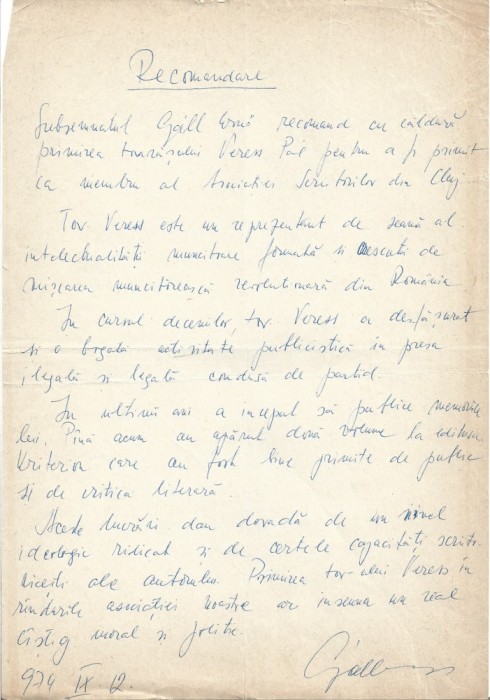 Recomandare
Subsemnatul Gáll Ernő recomand cu căldură
primirea tovarășului Veress Pál pentru a fi primit
ca membru al Asociației Scriitorilor din Cluj.
Tov. Veress este un reprezentant de seamă al
intelectualității muncitoare formată si crescută de
mișcarea muncitorească revoluționară din România
In cursul deceniilor, tov. Veress a desfășurat
si o bogată activitate publicistică in presa
ilegală si legală condusă de partid.
In ultimii ani a inceput să publice memoriile
lui. Pînă acum au apărut două volume la editura
Kriterion care au fost bine primite de public
si de critica literară.
Aceste lucrări dau dovadă de un nivel
ideologic ridicat și de certele capacități scriito-
ricești ale autorului. Primirea tov-ului Veress in
rîndurile asociației noastre ar insemna un real
cîștig moral si politic.
974 IX 12.
Gáll